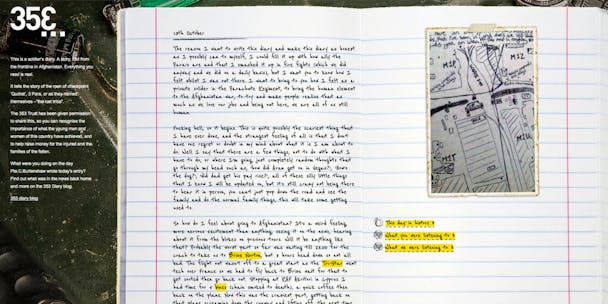 353...
This is a soldier's diary. A story told from
the frontline in Afghanistan. Everything you
read is real.
It tells the story of the men of checkpoint
'Qudrat', 3 Para, or as they named
themselves - 'the lost tribe'.
The 353 Trust has been given permission
to share this, so you can recognise the
importance of what the young men and
women of this country have achieved, and
to help raise money for the injured and the
families of the fallen.
What were you doing on the day
Pte.C.Burtenshaw wrote today's entry?
Find out what was in the news back home
and more on the 353 Diary blog.
353 diary blog
10th October
The reason I want to write this diary and make this diary as honest
as I possibly can to myself, I could fill it up with how silly the
and we did on a daily basis), but I want you to know how I
felt whilst I was out there. I want to bring to you how I felt as a
private soldier in the Parachute Regiment, to bring the human element
to the Afghanistan war, to try and make people realise that as
much as we love our jobs and being out here, we are all of us still
human.
Fucking hell, so it begins. This is quite possibly the scariest thing that
I have ever done, and the strangest feeling of all is that I don't
have one regret or doubt in my mind about what it is I am about to
do. Well I say that there are a few things, not to do with what I
have to do, or where I'm going, just completely random thoughts that
go through my head such as, how did Gran get on in
the dog?, did dad get his pay rise?, all of these silly little things
that I know I will be updated on, but it's still crazy not being there
to hear it in person, you can't just pop down the road and see the
family and do the normal family things, this will take some getting
used to.
So how do I feel about going to Afghanistan? It's a weird feeling,
more nervous excitement than anything, seeing it on the news, hearing
about it from the blokes on previous tours will it be anything like
that? Probably the worst part so far was waiting till 2200 for the
coach to take us to Brize Norton, but 2 hours head down so not all
bad. The flight out wasn't off to a great start as the Tri-Star went
tech over France so we had to fly back to Brize wait for that to
get sorted then go back out. Stopping at RAF Akrotiri in
had time for a
back on the plane. Now this was the craziest part, getting back on
M1T
M12
M1T
This day in history
What you were listening to
What we were listening to